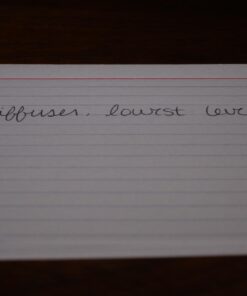 iffuser. lowest lev